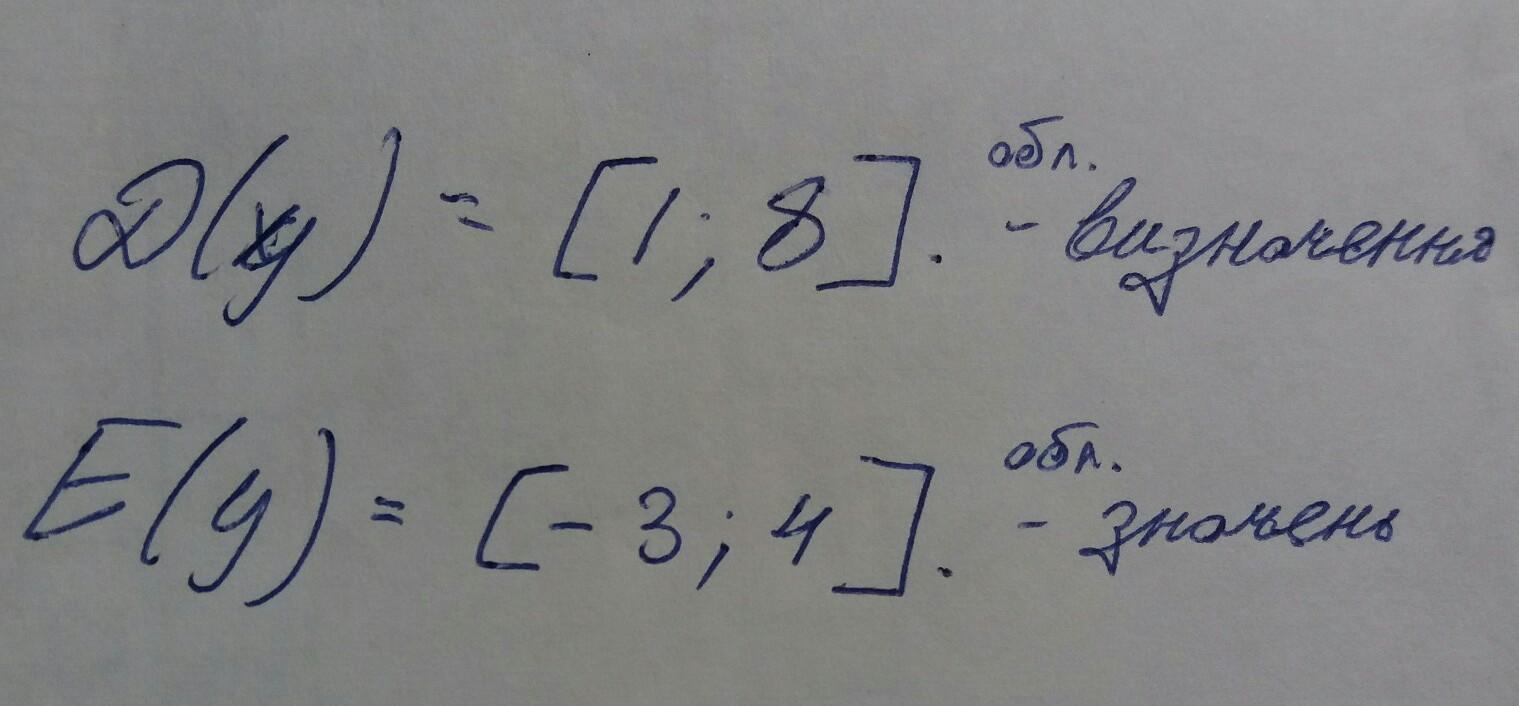 D(y) = [1; 8]. - обл. визначення
E(y) = [-3; 4]. - обл. значень